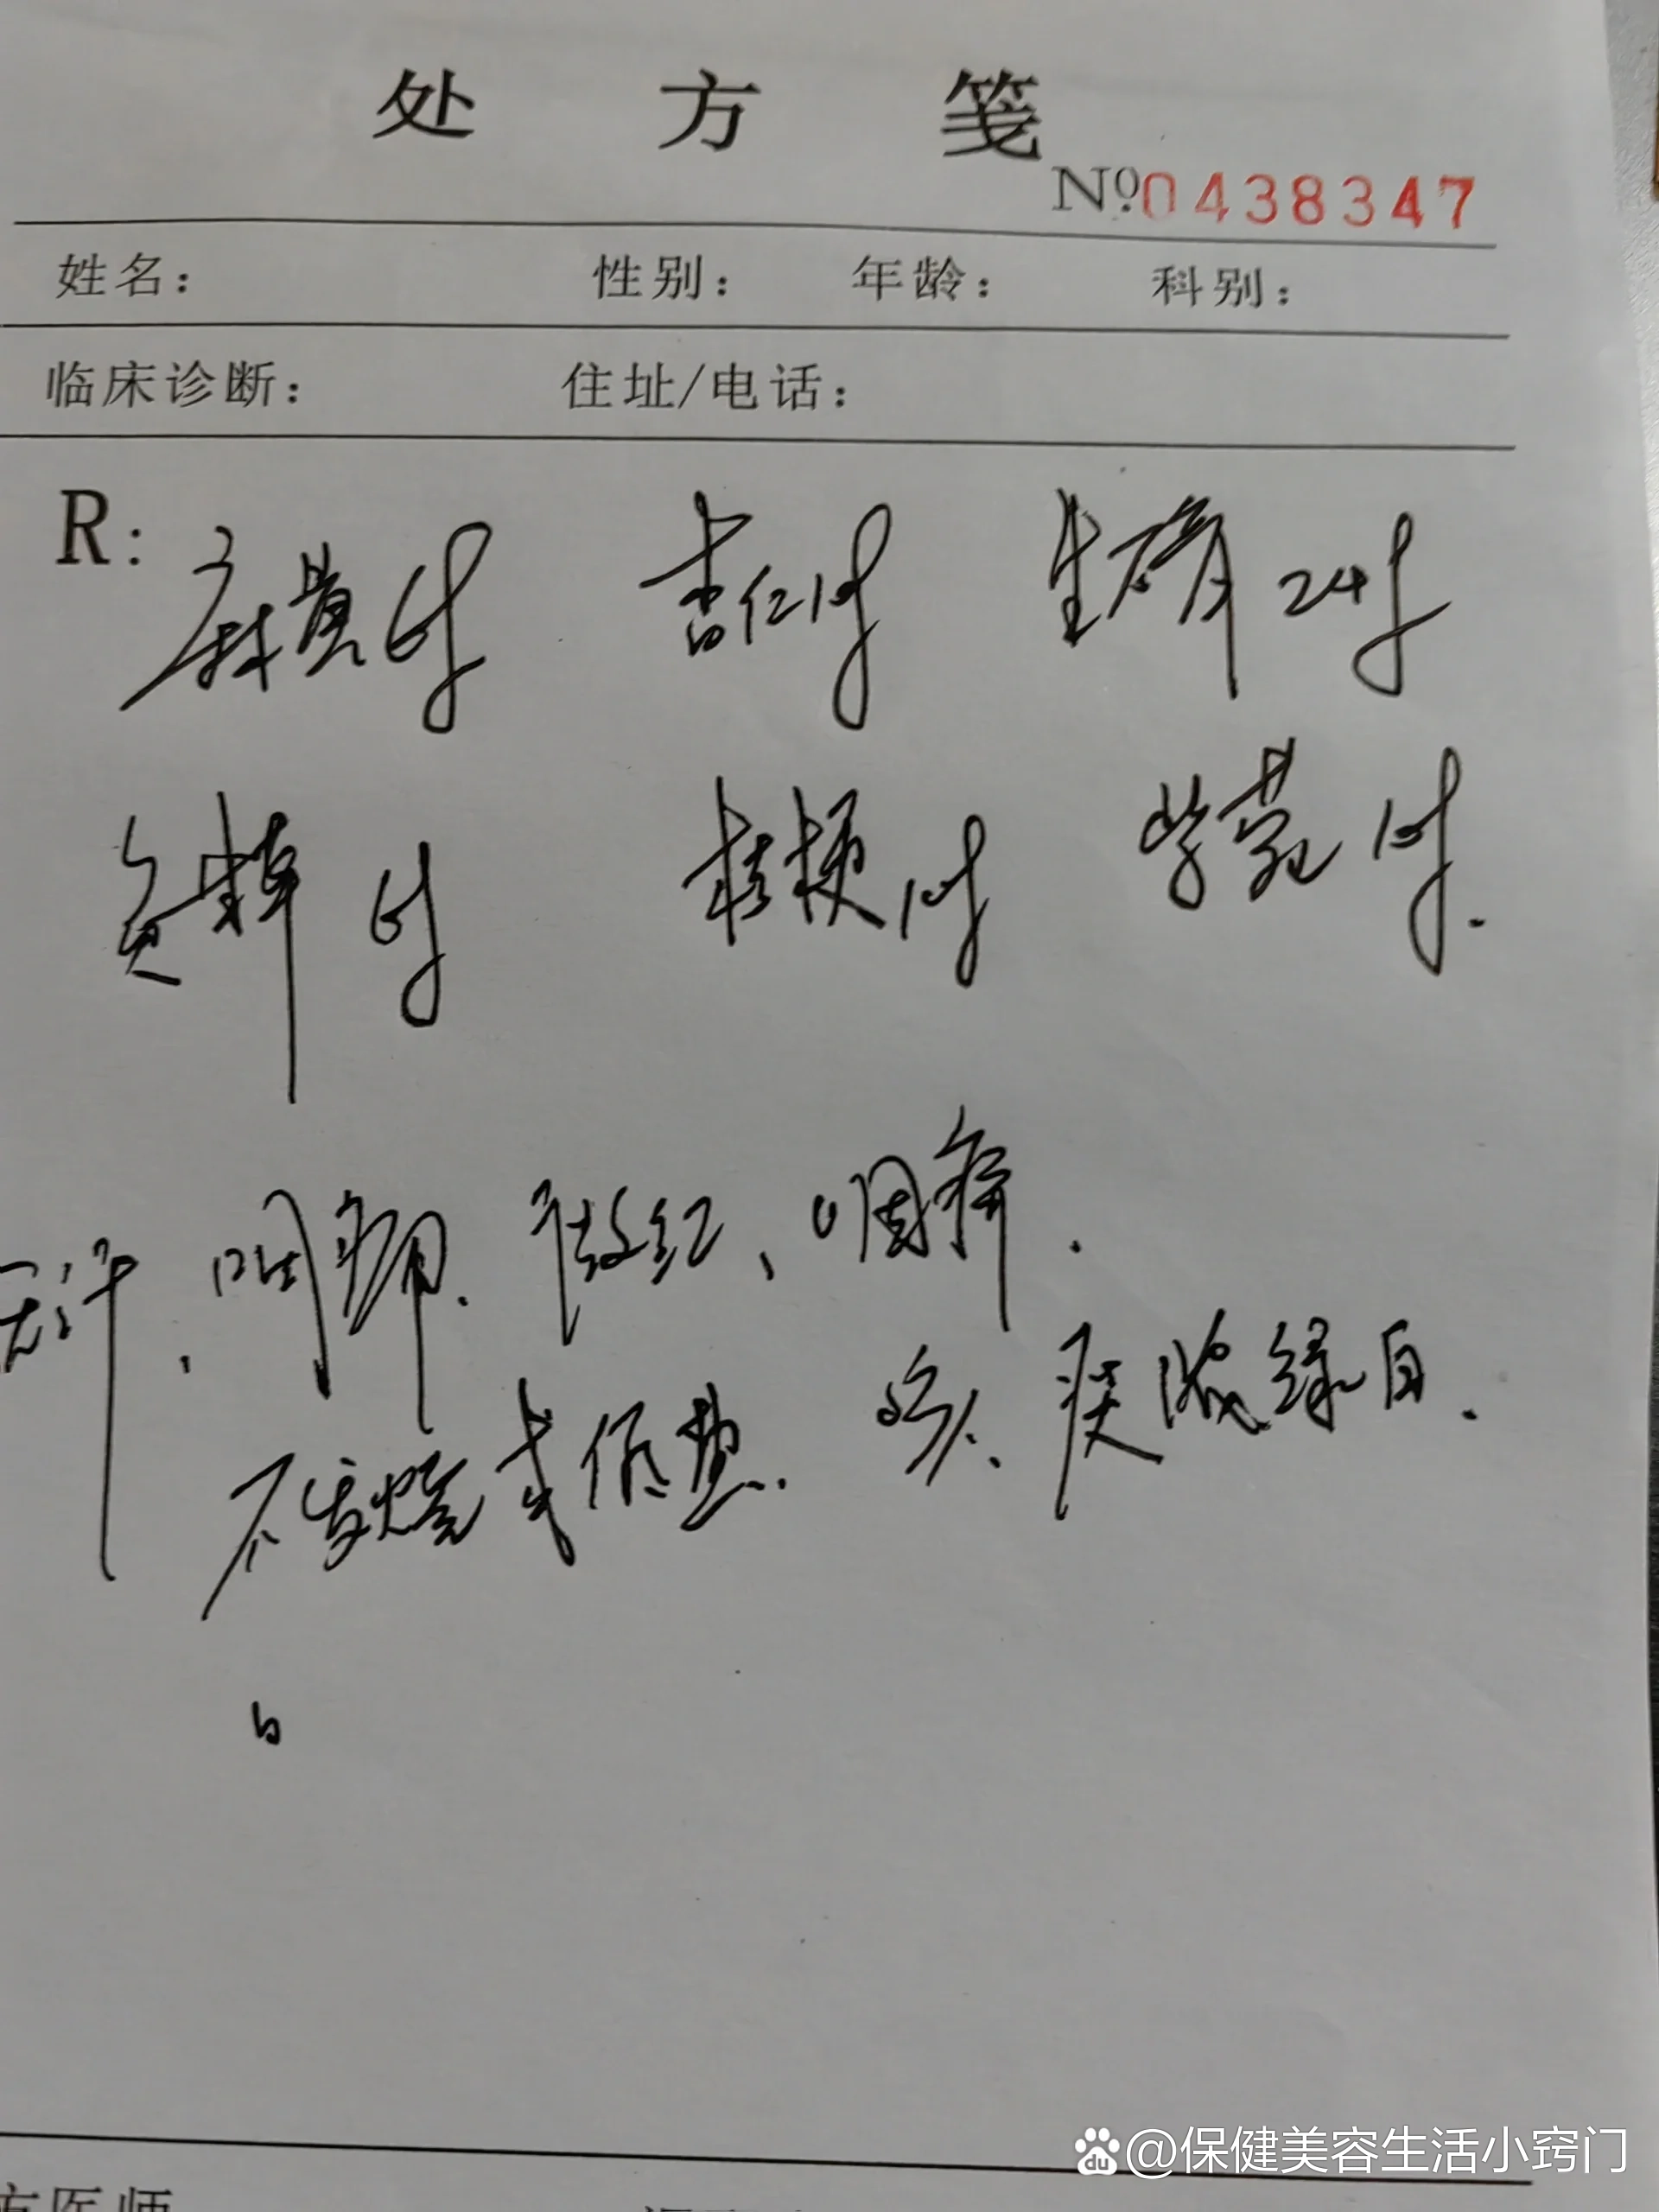 处方笺
No.0438347
姓名: 性别: 年龄: 科别:
临床诊断: 住址/电话:
R: 麻黄6g 杏仁10g 生石膏24g
炙甘草6g 桔梗10g 紫菀10g.
无汗、咽部. 微红、咽痛.
不发烧或低热. 咳、痰脓绿白.
@保健美容生活小窍门